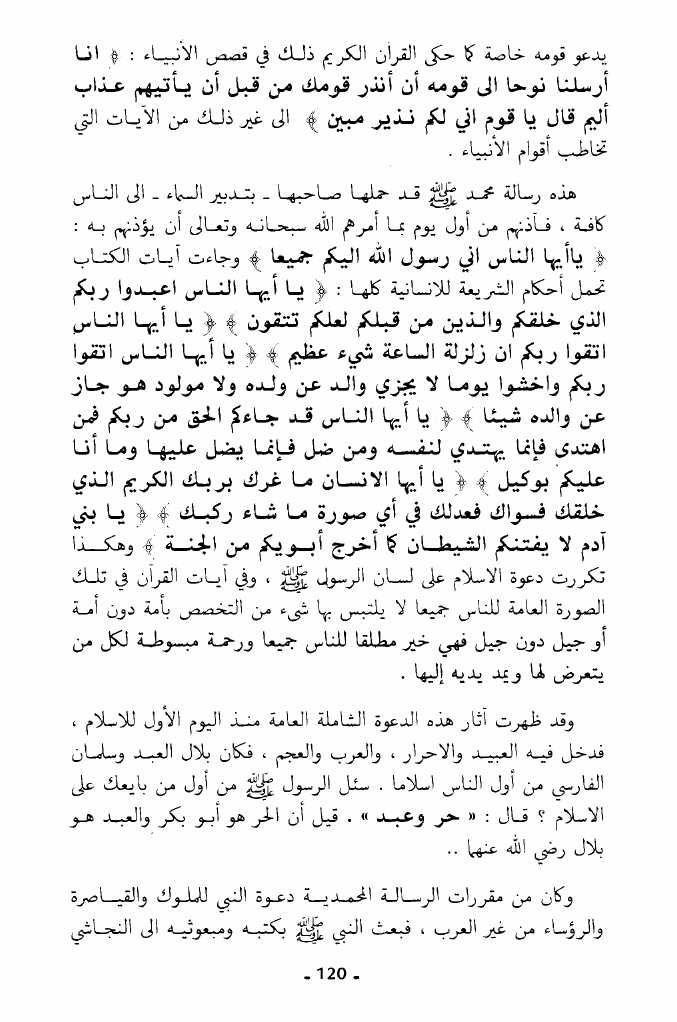 يدعو قومه خاصة كما حكى القرآن الكريم ذلك في قصص الأنبياء : ﴿ انا
أرسلنا نوحا الى قومه أن أنذر قومك من قبل أن يأتيهم عذاب
أليم قال يا قوم اني لكم نذير مبين ﴾ الى غير ذلك من الآيات التي
تخاطب أقوام الأنبياء .
هذه رسالة محمد ﷺ قد حملها صاحبها ـ بتدبير السماء ـ الى الناس
كافة ، فآذنهم من أول يوم بما أمرهم الله سبحانه وتعالى أن يؤذنهم به :
﴿ ياأيها الناس اني رسول الله اليكم جميعا ﴾ وجاءت آيات الكتاب
تحمل أحكام الشريعة للانسانية كلها : ﴿ يا أيها الناس اعبدوا ربكم
الذي خلقكم والذين من قبلكم لعلكم تتقون ﴾ ﴿ يا أيها الناس
اتقوا ربكم ان زلزلة الساعة شيء عظيم ﴾ ﴿ يا أيها الناس اتقوا
ربكم واخشوا يوما لا يجزي والد عن ولده ولا مولود هو جاز
عن والده شيئا ﴾ ﴿ يا أيها الناس قد جاءكم الحق من ربكم فمن
اهتدى فإنما يهتدي لنفسه ومن ضل فإنما يضل عليها وما أنا
عليكم بوكيل ﴾ ﴿ يا أيها الانسان ما غرك بربك الكريم الذي
خلقك فسواك فعدلك في أي صورة ما شاء ركبك ﴾ ﴿ يا بني
آدم لا يفتنكم الشيطان كما أخرج أبويكم من الجنة ﴾ وهكذا
تكررت دعوة الاسلام على لسان الرسول ﷺ ، وفي آيات القرآن في تلك
الصورة العامة للناس جميعا لا يلتبس بها شيء من التخصص بأمة دون أمة
أو جيل دون جيل فهي خير مطلقا للناس جميعا ورحمة مبسوطة لكل من
يتعرض لها ويمد يديه إليها .
وقد ظهرت آثار هذه الدعوة الشاملة العامة منذ اليوم الأول للاسلام ،
فدخل فيه العبيد والاحرار ، والعرب والعجم ، فكان بلال العبد وسلمان
الفارسي من أول الناس اسلاما . سئل الرسول ﷺ من أول من بايعك على
الاسلام ؟ قال : « حر وعبد » . قيل أن الحر هو أبو بكر والعبد هو
بلال رضي الله عنهما ..
وكان من مقررات الرسالة المحمدية دعوة النبي للملوك والقياصرة
والرؤساء من غير العرب ، فبعث النبي ﷺ بكتبه ومبعوثيه الى النجاشي
- 120 -